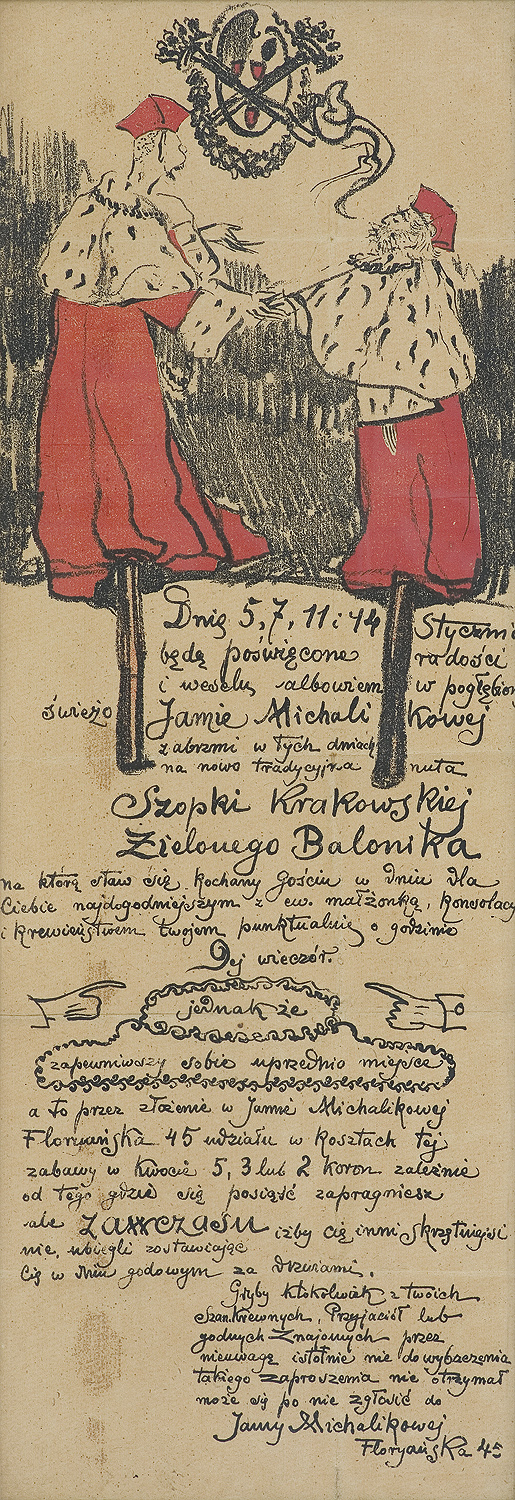 Dnię 5, 7, 11 i 14 Styczni
będą poświęcone radości
i weselu albowiem w pogłębion
świeżo Jamie Michalikowej
zabrzmi w tych dniach
na nowo tradycyjna nuta
Szopki Krakowskiej
Zielonego Balonika
na którą staw się Kochany Gościu w dniu dla
Ciebie najdogodniejszym z ew. małżonką, Konsolacy
i Krewieństwem twojem punktualnie o godzinie
9ej wieczór.
jednak że
zapewniwszy sobie uprzednio miejsce
a to przez złożenie w Jamie Michalikowej
Floryańska 45 udziału w Kosztach tej
zabawy w Kwocie 5, 3 lub 2 koron zależnie
od tego gdzie się posiąść zapragniesz
ale zawczasu iżby cię inni skrzętniejsi
nie ubiegli zostawiając
Cię w dniu godowym za drzwiami.
Gdyby Ktokolwiek z twoich
Szan. Krewnych, Przyjaciół lub
godnych Znajomych przez
nieuwagę istotnie nie do wybaczenia
takiego zaproszenia nie otrzymał
może się po nie zgłosić do
Jamy Michalikowej
Floryańska 45